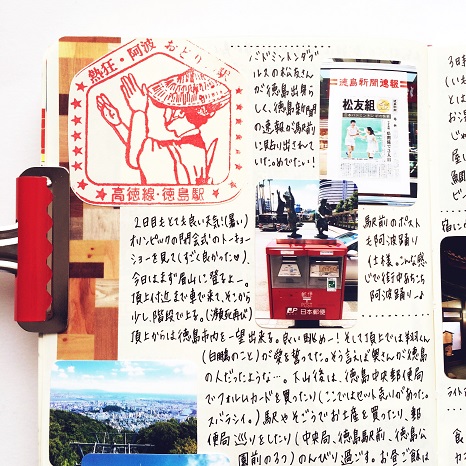 熱狂・阿波おどりの駅
高徳線・徳島駅
バドミントンダブ
ルスの松友さん
が徳島出身ら
しく、徳島新聞
の速報が駅前
に貼り出されて
いた。めでたい!
徳島新聞速報
松友組
金
2日目もとても良い天気!(暑い)
オリンピックの閉会式のトーキョー
ショーを見て(すごく良かった)
今日はまず眉山に登るよー。
頂上付近まで車で来て、そこから
少し、階段で上る。(瀕死再び)
頂上からは徳島市内を一望出来る。良い眺めー!そして頂上では
(のこと)が愛を誓ってた。そう言えば奥さんが徳島
の人だったような…。下山後は、徳島中央郵便局
でフォルムカードを買ったり(ここではセット売りがあった。
スバラシイ。)駅やそごうでお土産を買ったり、郵
便局巡りをしたり(中央局、徳島駅前、徳島公
園前の3つ)のんびり過ごす。お昼ご飯は
駅前のポスト
も阿波踊り
仕様。こんな感
じで街中あちこち
阿波踊り♪
日本郵便
3日